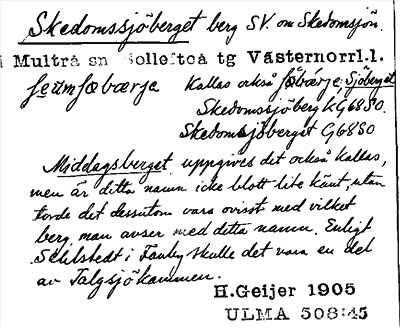 Skedomssjöberget berg SV. om Skedomsjön.
i Multrå sn Sollefteå tg Västernorrl.l.
Kallas också Sjöberget
Skedomssjöberg KG6880.
Skedomssjöberget G6880
Middagsberget uppgives det också kallas,
men är detta namn icke blott lite känt, utan
torde det dessutom vara ovisst med vilket
berg man avser med detta namn. Enligt
Sehlstedt i Fanby skulle det vara en del
av Talgsjökammen.
H.Geijer 1905
ULMA 508:45